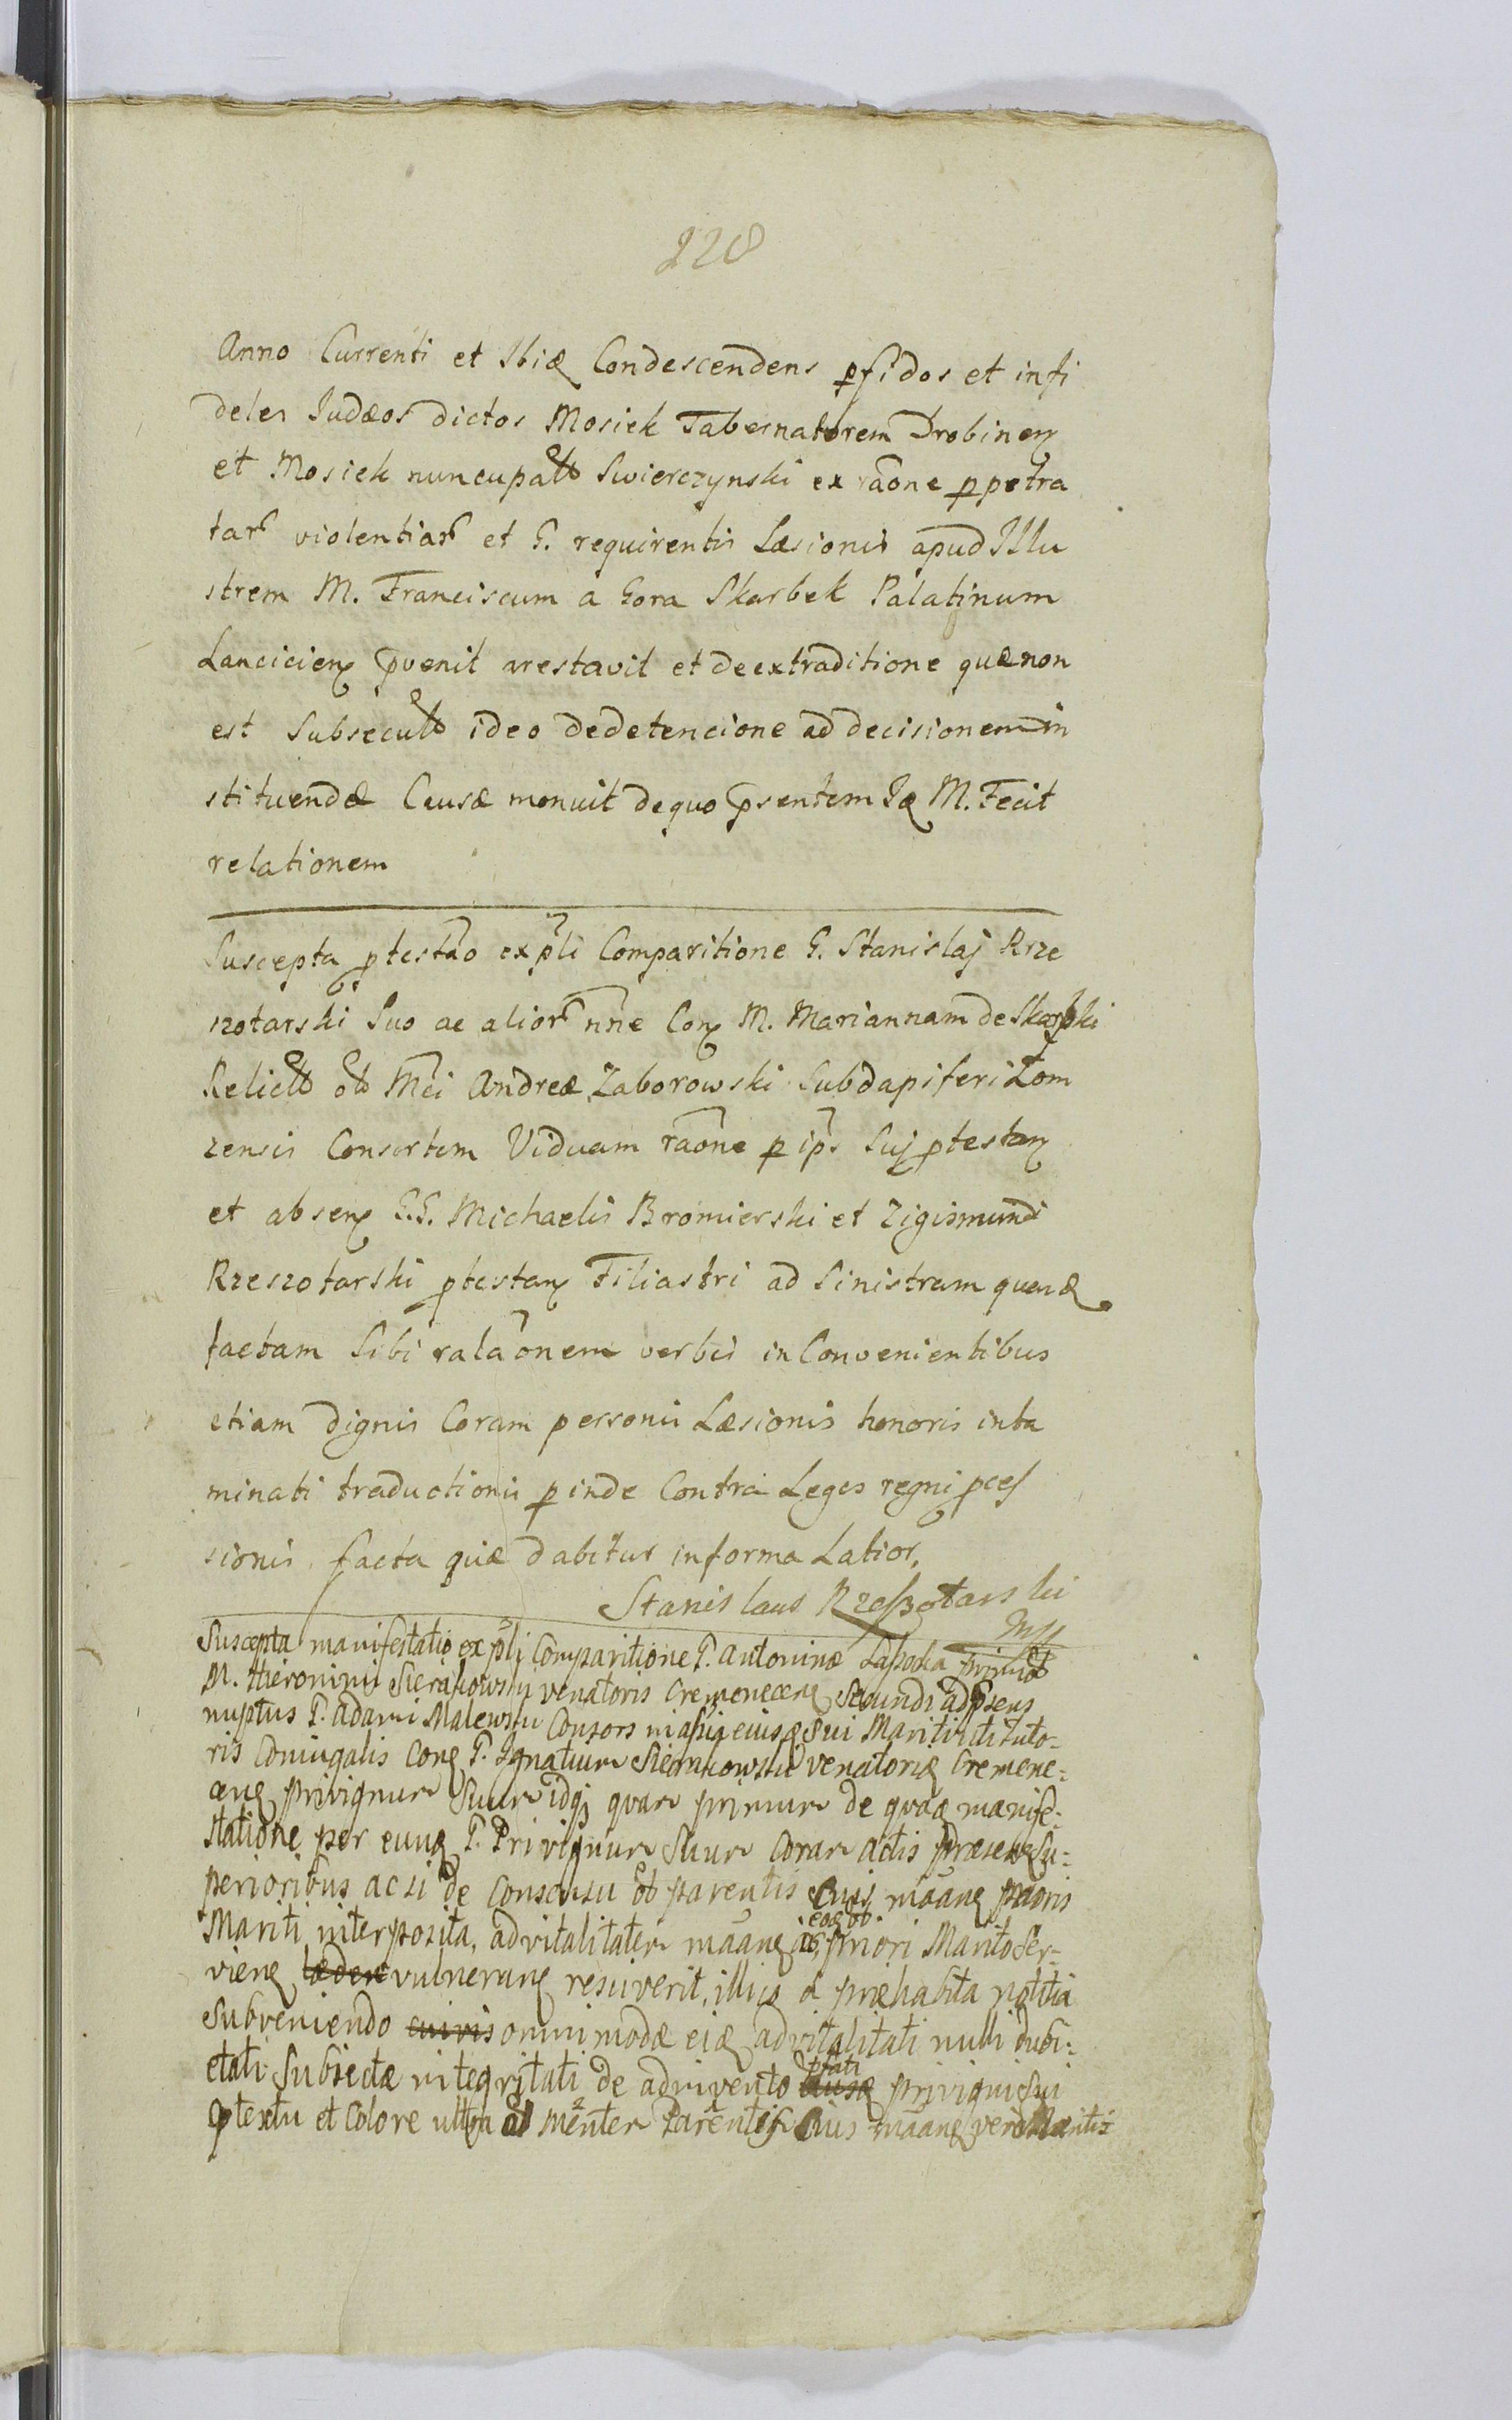 228
Anno Currenti et Ibiq Condescendens pfidos et infi
deles Judæos dictos Mosiek Tabernatorem Drobinen
et Mosiek nuncupat Swierczynski ex raone ppetra
tar violentiar et G. requirentis Læsionis apud Illu
strem M. Franciscum a Gora Skarbek Palatinum
Lancicien pvenit arestavit et de extraditione quæ non
est Subsecut ideo de detencione ad decisionem in
stituendæ Causæ monuit de quo psentem Iq M. Fecit
relationem
Suscepta ptestao ex pli Comparitione G. Stanislaj Rze
szotarski Suo ac alior nne Con M. Mariannam de Skarpki
Relict ol Mci Andreæ Zaborowski Subdapiferi Lom
zensis Consortem Viduam raone p ips Suj ptestan
et absen G.G. Michaelis Bromierski et Zigismundi
Rzeszotarski ptestan Filiastri ad Sinistram quandæ
factam Sibi ralaonem verbis in Convenientibus
etiam dignis Coram personis Læsionis honoris inta
minati traductionis p inde Contra Leges regni pces
sionis facta quæ dabitur in forma Latior,
Stanislaus Rzeszotarski
mp
Suscepta manifestatio ex pli Comparitione G. Antoninæ Lasocka primo
M. Hieronimi Sierakowski venatoris Cremenecen Secundi ad psens
nuptus G. Adami Malewski Consors in assia eiusq Sui Mariti uti tuto-
ris Coniugalis Con G. Ignatium Sierakowski venatoriq Cremene:
cen privignum Suum idq quam primum de quadæ manife:
statione per eunq G. Privignum Suum Coram Actis præsen Su:
perioribus ac si de Consensu ol parentis Cuis maan prioris
Mariti interposita, advitalitatem maan eoq ol priori Marito Ser-
vien læden vulneran resciverit, illico a præhabita notitia
Subveniendo cuivis omnimodæ eiq advitalitati nulli dubi:
etati Subiectæ integritati de adinvento pfati privigni Sui
ptextu et Colore ultra al menter Parentis Cuis maan vero Maritis